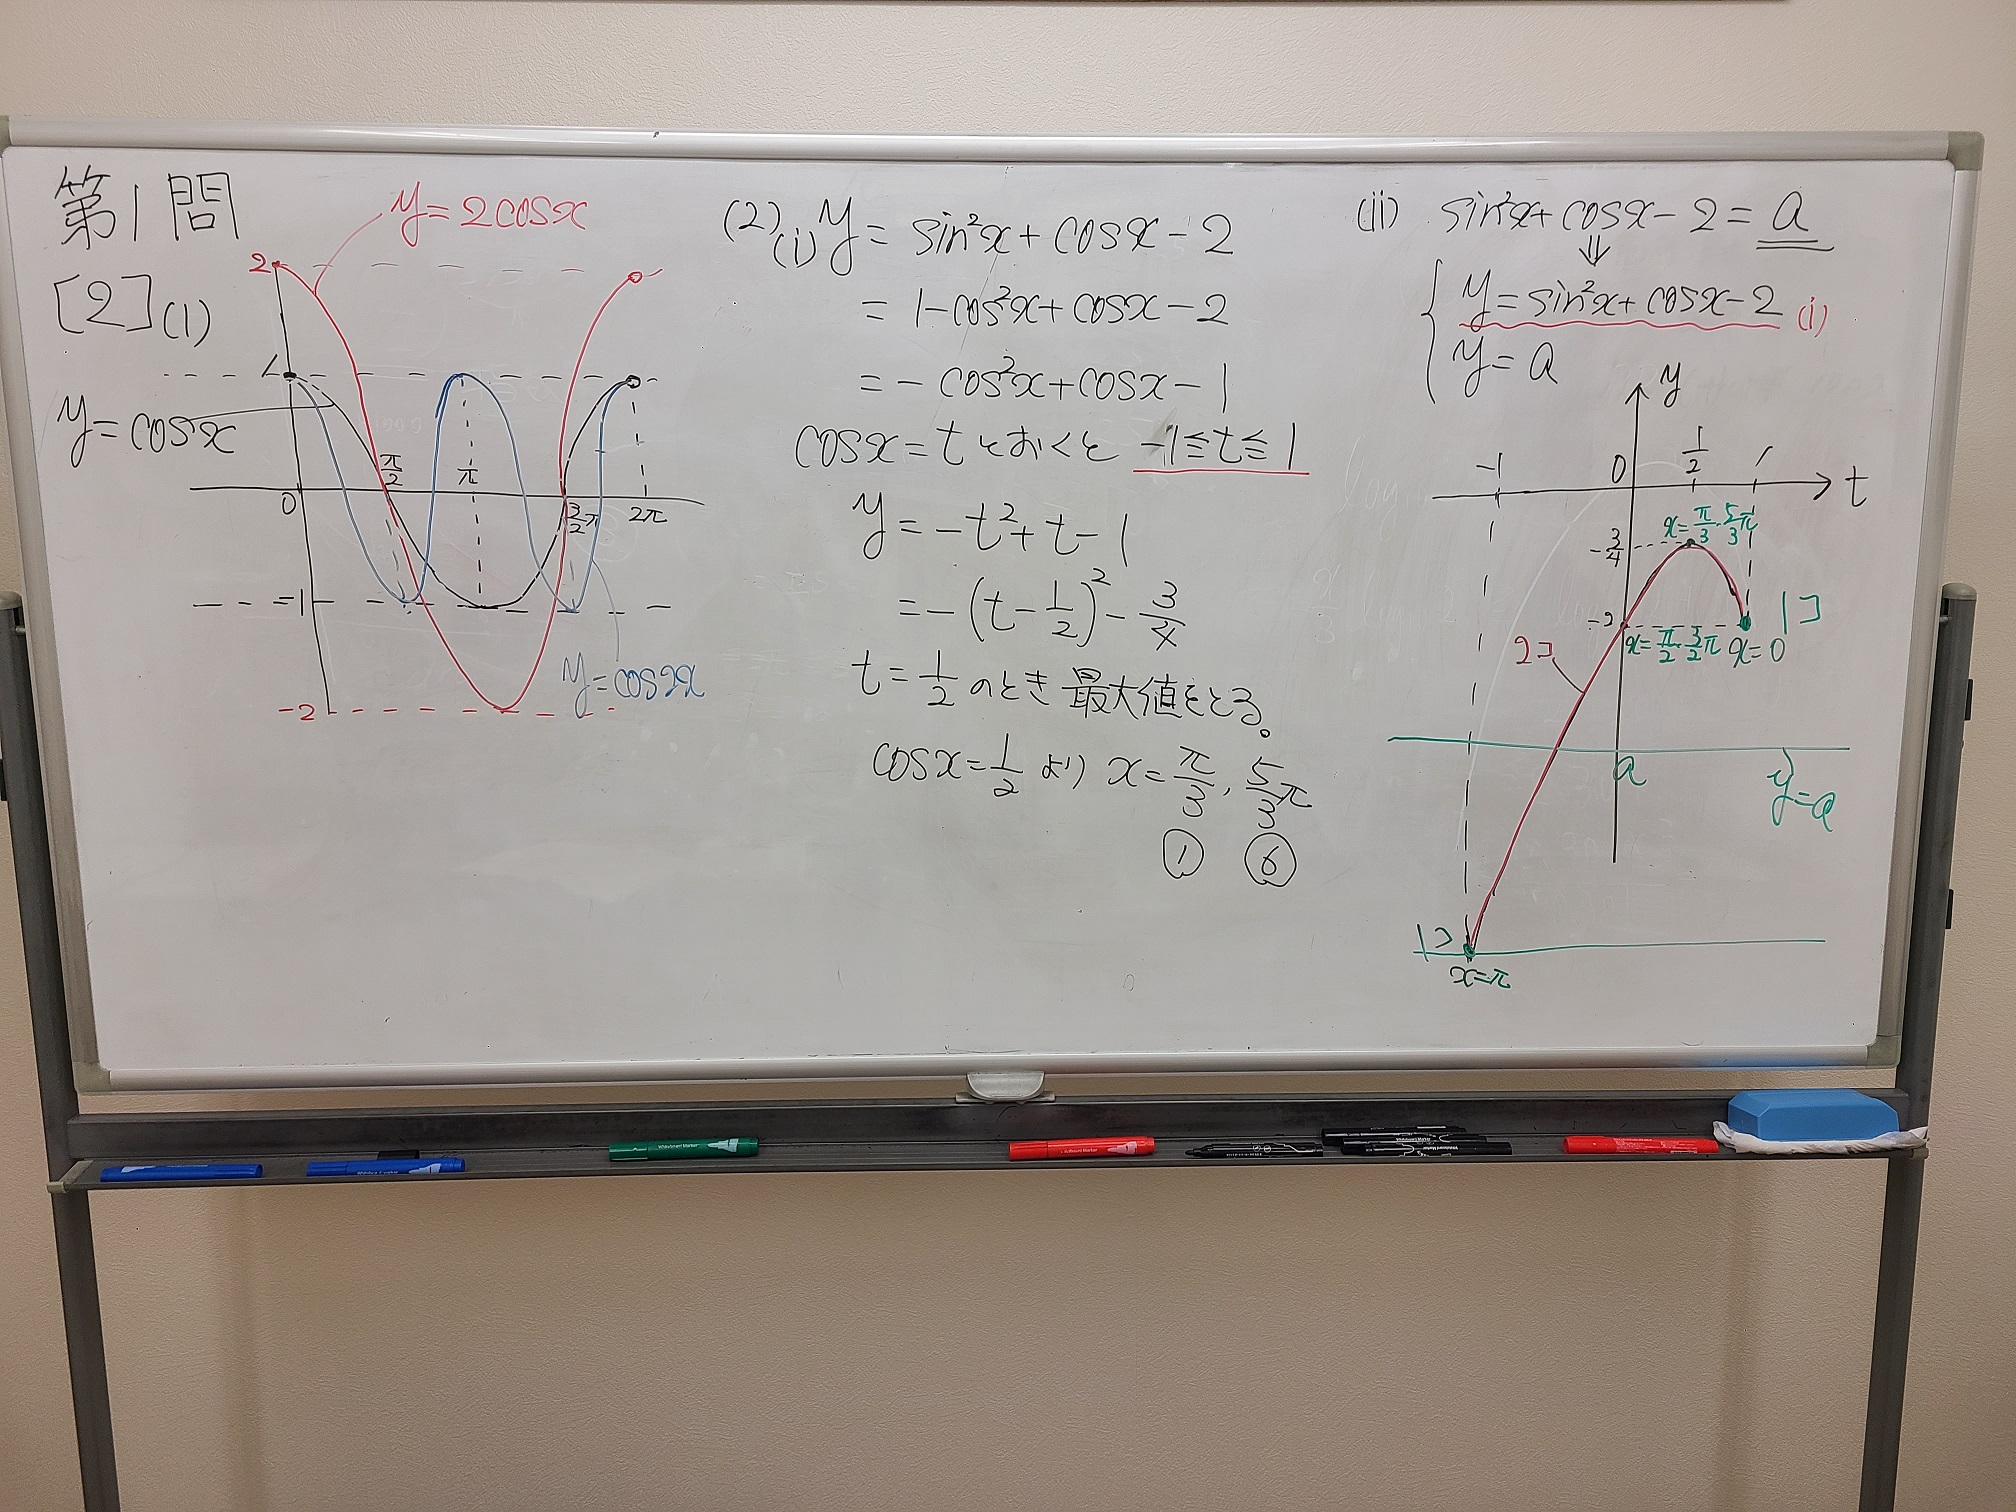 第1問
[2](1)
y=2cosx
2
1
y=cosx
π/2
π
0
3/2π
2π
-1
y=cos2x
-2
(2)(i) y=sin²x+cosx-2
=1-cos²x+cosx-2
=-cos²x+cosx-1
cosx=tとおくと -1≦t≦1
y=-t²+t-1
=-(t-1/2)²-3/4
t=1/2のとき最大値をとる。
cosx=1/2より x=π/3, 5/3π
① ⑥
(ii) sin²x+cosx-2=a
⇓
{ y=sin²x+cosx-2 (i)
y=a
y
-1 0 1/2 1 t
x=π/3・5/3π
-3/4
1コ
x=π/2・3/2π x=0
2コ
a
y=a
1コ
x=π
Whiteboard Marker